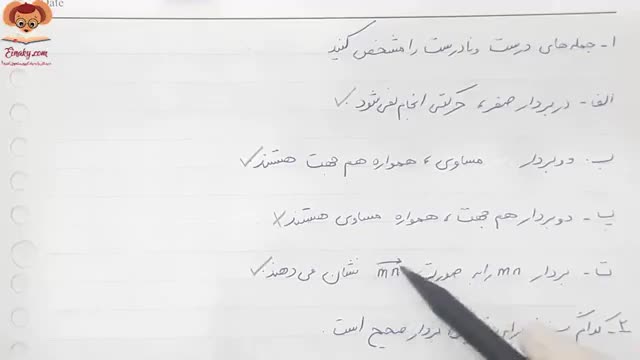 Date
Einaky.com
۱- جمله های درست و نادرست را مشخص کنید
الف- در بردار صفر، حرکتی انجام نمی شود ✓
ب- دو بردار مساوی، همواره هم جهت هستند ✓
پ- دو بردار هم جهت، همواره مساوی هستند ✗
ت- بردار mn را به صورت mn نشان می دهند ✓
۲- کدام بردار صحیح است.